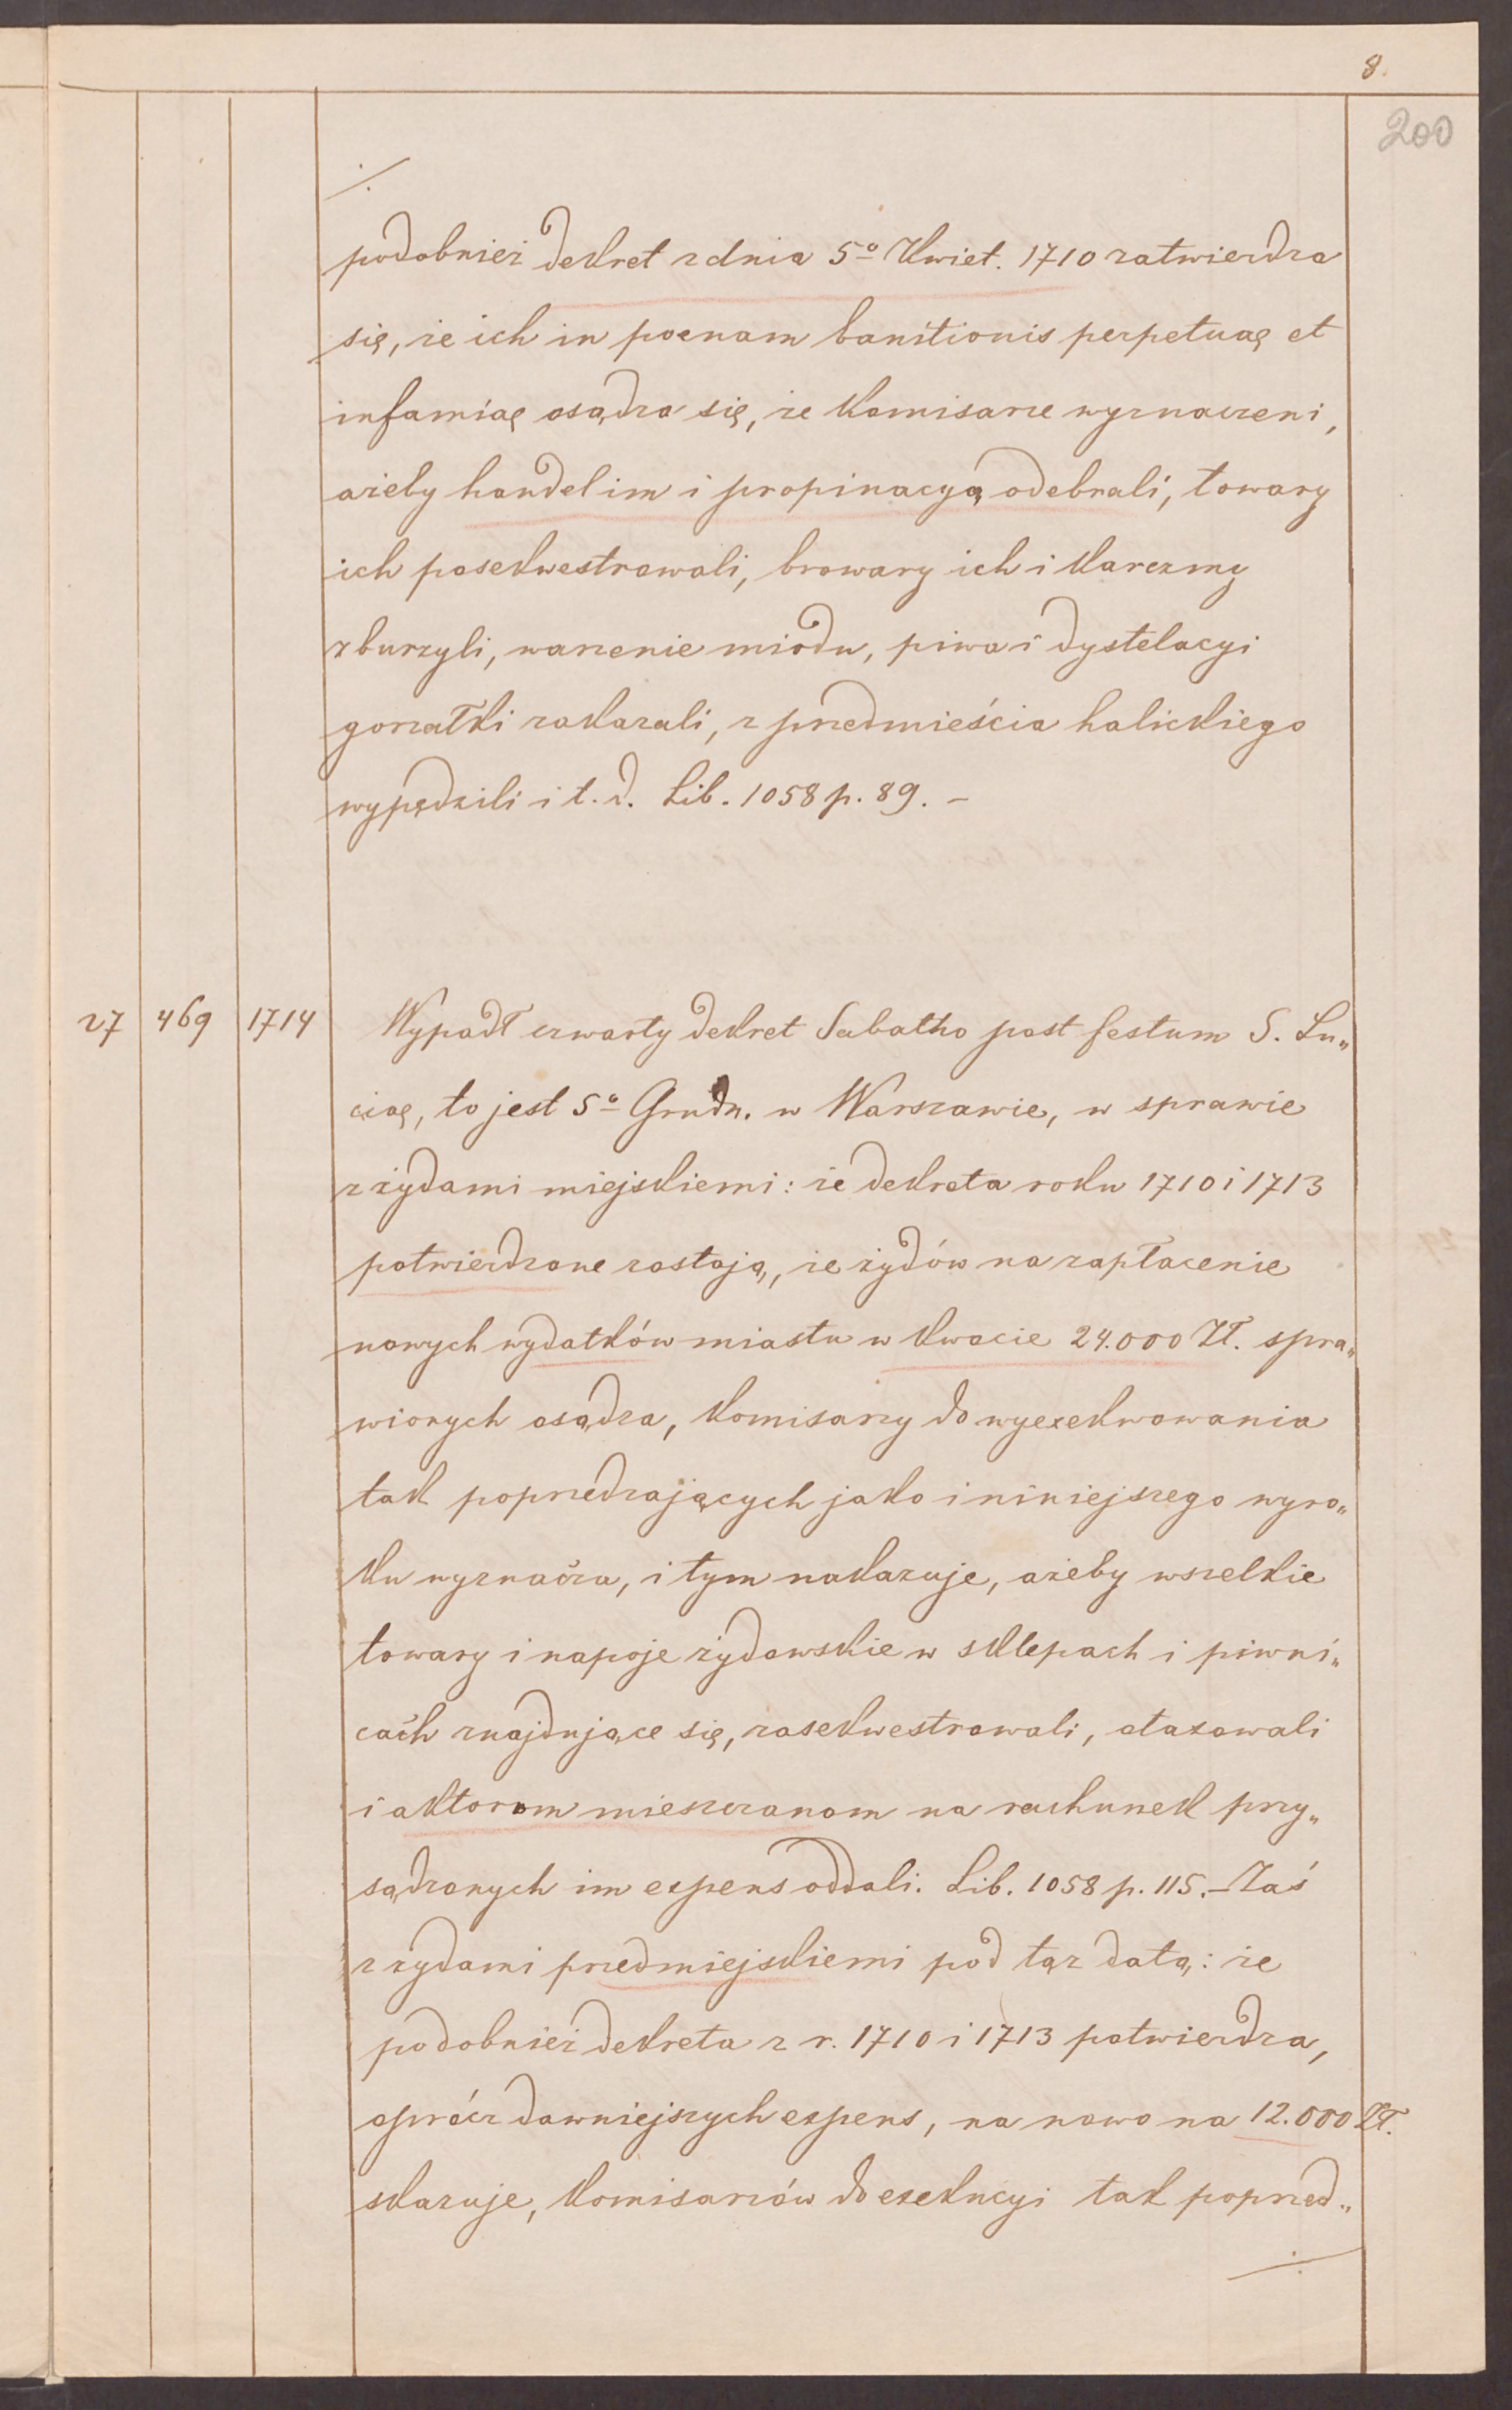 8.
200
./.
podobnież dekret z dnia 5º Kwiet. 1710 zatwierdza
się, że ich in poenam banitionis perpetuae et
infamiae osądza się, że Komisarze wyznaczeni,
ażeby handel im i propinacyą odebrali, towary
ich posekwestrowali, browary ich i karczmy
zburzyli, warzenie miodu, piwa i dystelacyi
gorzałki zakazali, z przedmieścia halickiego
wypędzili i t. d. Lib. 1058 p. 89. –
27 469 1714 Wypadł czwarty dekret Sabatho post festum S. Lu„
ciae, to jest 5º Grudn. w Warszawie, w sprawie
z żydami miejskiemi: że dekreta roku 1710 i 1713
potwierdzone zostają, że żydów na zapłacenie
nowych wydatków miastu w kwocie 24.000 Zł. spra„
wionych osądza, Komisarzy do wyexekwowania
tak poprzedzających jako i niniejszego wyro„
ku wyznacza, i tym nakazuje, ażeby wszelkie
towary i napoje żydowskie w sklepach i piwni„
cach znajdujące się, zasekwestrowali, otaxowali
i aktorom mieszczanom na rachunek przy„
sądzonych im expens oddali. Lib. 1058 p. 115. – Zaś
z żydami przedmiejskiemi pod tąż datą: że
podobnież dekreta z r. 1710 i 1713 potwierdza,
oprócz dawniejszych expens, na nowo na 12.000 Zł.
skazuje, Komisarzów do exekucyi tak poprzed„
./.